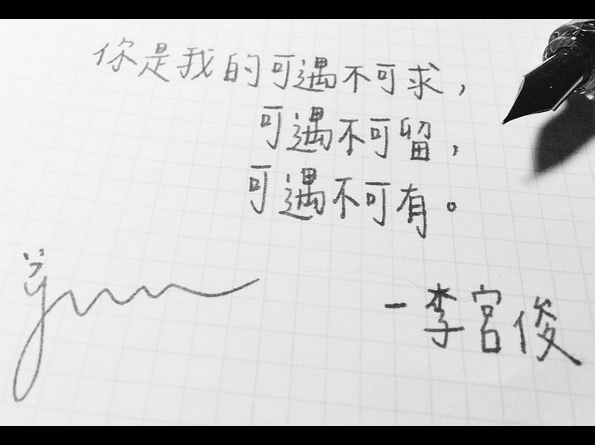 你是我的可遇不可求，
可遇不可留，
可遇不可有。
-李宮俊